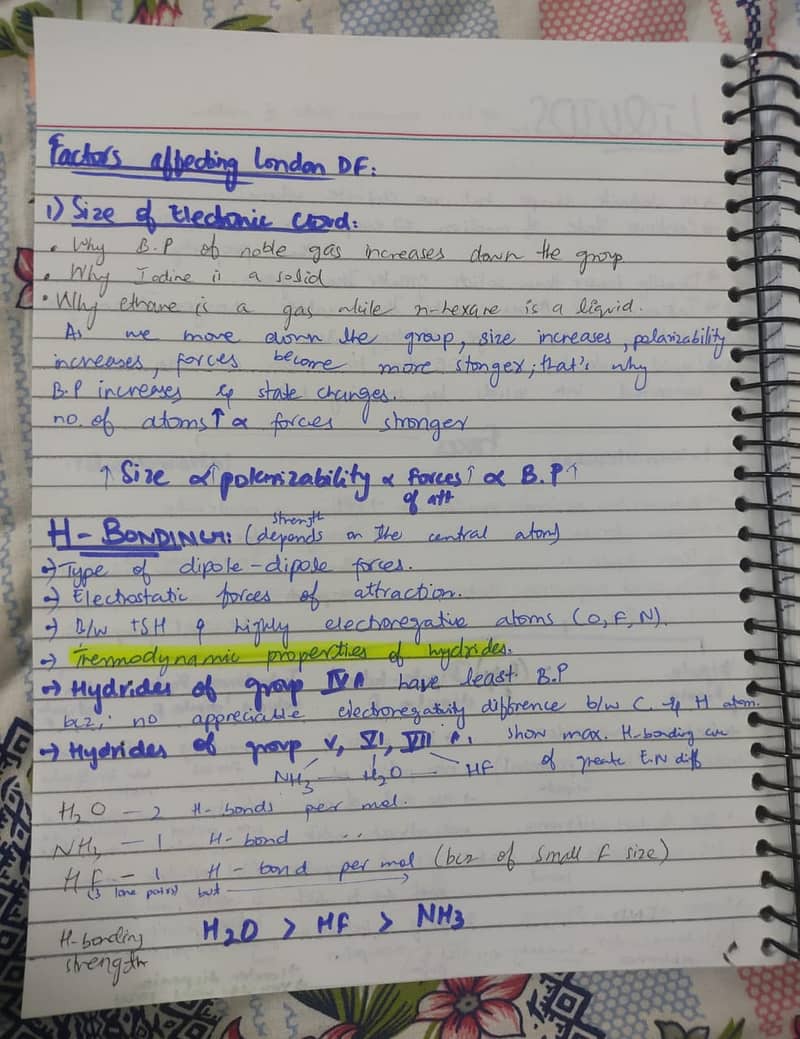 Factors affecting London DF:
1) Size of Electonic Cloud:
• Why B.P of noble gas increases down the group
• Why Iodine is a solid
• Why ethane is a gas while n-hexane is a liquid.
As we move down the group, size increases, polarizability
increases, forces become more stonger, that's why
B.P increases & state changes.
no. of atoms ↑ ∝ forces stronger
↑ Size ∝ ↑ polarizability ∝ forces ↑ ∝ B.P ↑
of att
H-BONDING: (depends strength on the central atom)
→ Type of dipole-dipole forces.
→ Electrostatic forces of attraction.
→ B/w +SH & highly electronegative atoms (O, F, N).
→ Tremodynamic properties of hydrides.
→ Hydrides of group IVA have least B.P
bcz; no appreciable electronegativity difference b/w C & H atom.
→ Hydrides of group V, VI, VII A, show max. H-bonding
NH3 — H2O — HF of greate E.N diff
H2O — 2 H-bonds per mol.
NH3 — 1 H-bond ..
HF — 1 H-bond per mol (bcz of small F size)
(3 lone pairs) but →
H-bonding H2O > HF > NH3
strength